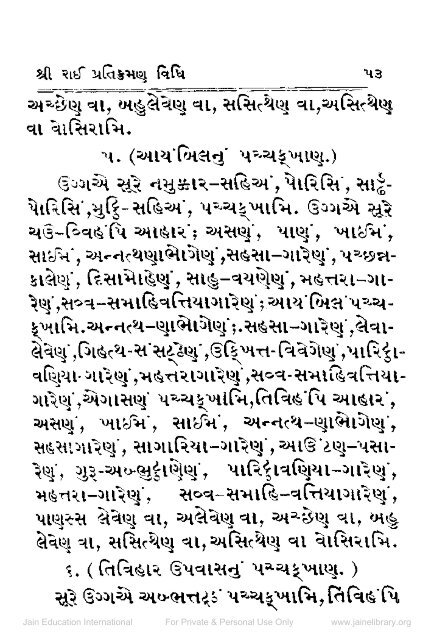 શ્રી રાઈ પ્રતિક્રમણ વિધિ ૫૩
અચ્છેણ વા, બહુલેવેણ વા, સસિત્થેણ વા,અસિત્થેણ
વા વોસિરામિ.
૫. (આયંબિલનું પચ્ચક્ખાણ.)
ઉગ્ગએ સૂરે નમુક્કાર-સહિઅં, પોરિસિં, સાર્ડ્ઢ-
પોરિસિં,મુટ્ઠિ-સહિઅં, પચ્ચક્ખામિ. ઉગ્ગએ સૂરે
ચઉ-વ્વિહંપિ આહારં; અસણં, પાણં, ખાઈમં,
સાઈમં, અન્નત્થણાભોગેણં,સહસા-ગારેણં,પચ્છન્ન-
કાલેણં, દિસામોહેણં, સાહુ-વયણેણં, મહત્તરા-ગા-
રેણં,સવ્વ-સમાહિવત્તિયાગારેણં;આયંબિલં પચ્ચ-
ક્ખામિ.અન્નત્થ-ણાભોગેણં;.સહસા-ગારેણં,લેવા-
લેવેણં,ગિહત્થ-સંસટ્ઠેણં,ઉક્ખિત્ત-વિવેગેણં,પારિટ્ઠા-
વણિયા-ગારેણં,મહત્તરાગારેણં,સવ્વ-સમાહિવત્તિયા-
ગારેણં,એગાસણં પચ્ચક્ખામિ,તિવિહંપિ આહારં,
અસણં, ખાઈમં, સાઈમં, અન્નત્થ-ણાભોગેણં,
સહસાગારેણં, સાગારિયા-ગારેણં, આઉંટણ-પસા-
રેણં, ગુરૂ-અબ્ભુટ્ઠાણેણં, પારિટ્ઠાવણિયા-ગારેણં,
મહત્તરા-ગારેણં, સવ્વ-સમાહિ-વત્તિયાગારેણં,
પાણસ્સ લેવેણ વા, અલેવેણ વા, અચ્છેણ વા, બહુ
લેવેણ વા, સસિત્થેણ વા,અસિત્થેણ વા વોસિરામિ.
૬. ( તિવિહાર ઉપવાસનું પચ્ચક્ખાણ. )
સૂરે ઉગ્ગએ અબ્ભત્તટ્ઠં પચ્ચક્ખામિ,તિવિહંપિ
Jain Education International For Private & Personal Use Only www.jainelibrary.org